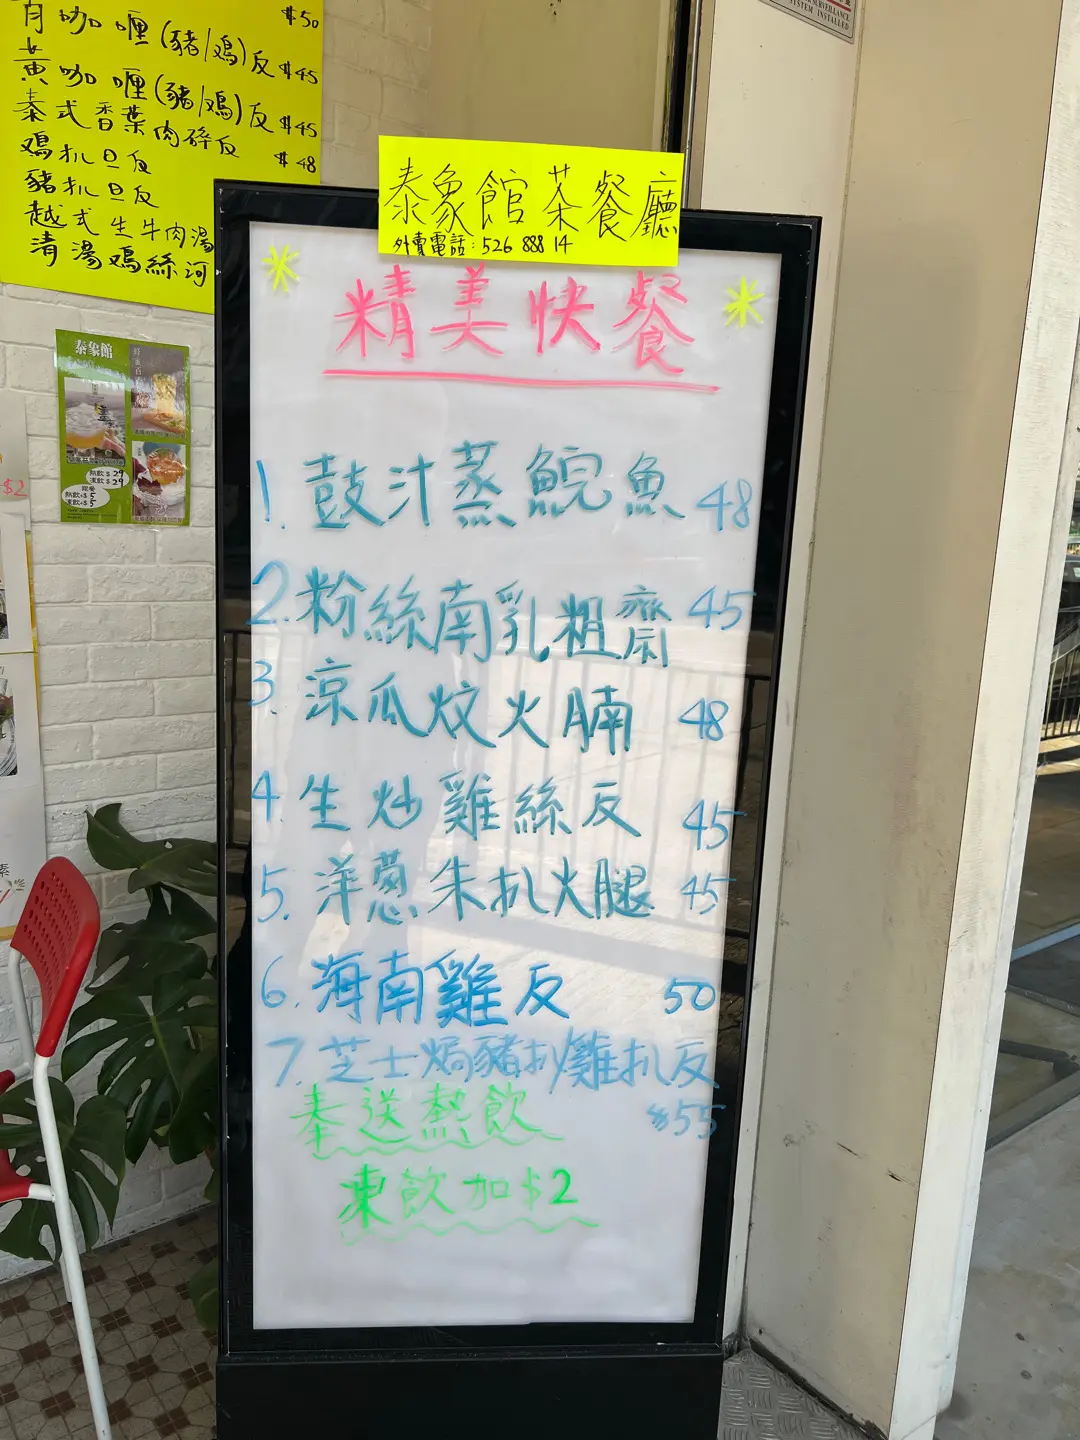 咖喱(豬/鳮)反 $50
黄咖喱(豬/鳮)反 $45
泰式香葉肉碎反 $45
鳮扒旦反 $48
豬扒旦反
越式生牛肉湯
清湯鳮絲河
SURVEILLANCE
SYSTEM INSTALLED
泰象館茶餐廳
外賣電話:526 888 14
精美快餐
1. 鼓汁蒸鯇魚 48
2. 粉絲南乳粗齋 45
3. 涼瓜炆火腩 48
4. 生炒雞絲反 45
5. 洋葱朱扒火腿 45
6. 海南雞反 50
7. 芝士焗豬扒/雞扒反
$55
奉送熱飲
東飲加$2
泰象館
熱飲$29
凍飲$29
熱飲+$5
凍飲+$5
$2